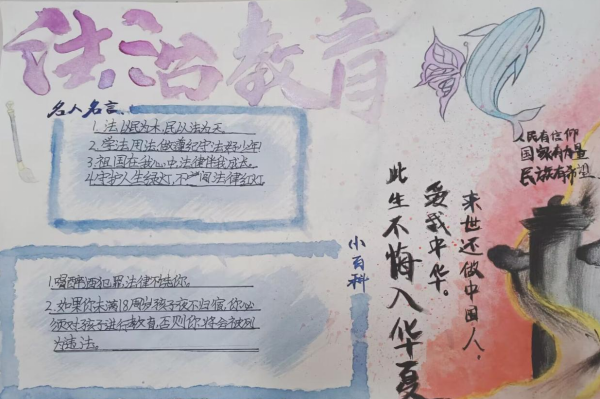 法治教育
名人名言
1.法以民为本,民以法为天。
2.学法用法做遵纪守法好少年
3.祖国在我心中法律伴我成长
4.守护人生绿灯,不闯法律红灯
人民有信仰
国家有力量
民族有希望
来世还做中国人,
爱我中华。
此生不悔入华夏
小百科
1.喝醉酒犯罪,法律不怪你。
2.如果你未满18周岁孩子夜不归宿,你必
须对孩子进行教育,否则你将会被列
为违法。